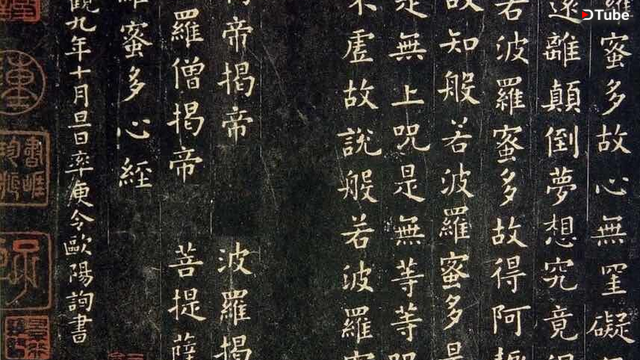 DTube
羅蜜多故心無罣礙
遠離顛倒夢想究竟
若波羅蜜多故得阿
故知般若波羅蜜多是
是無上咒是無等等咒
不虛故說般若波羅
帝揭帝 波羅揭
羅僧揭帝 菩提薩
羅蜜多心經
觀九年十月旦日率更令歐陽詢書